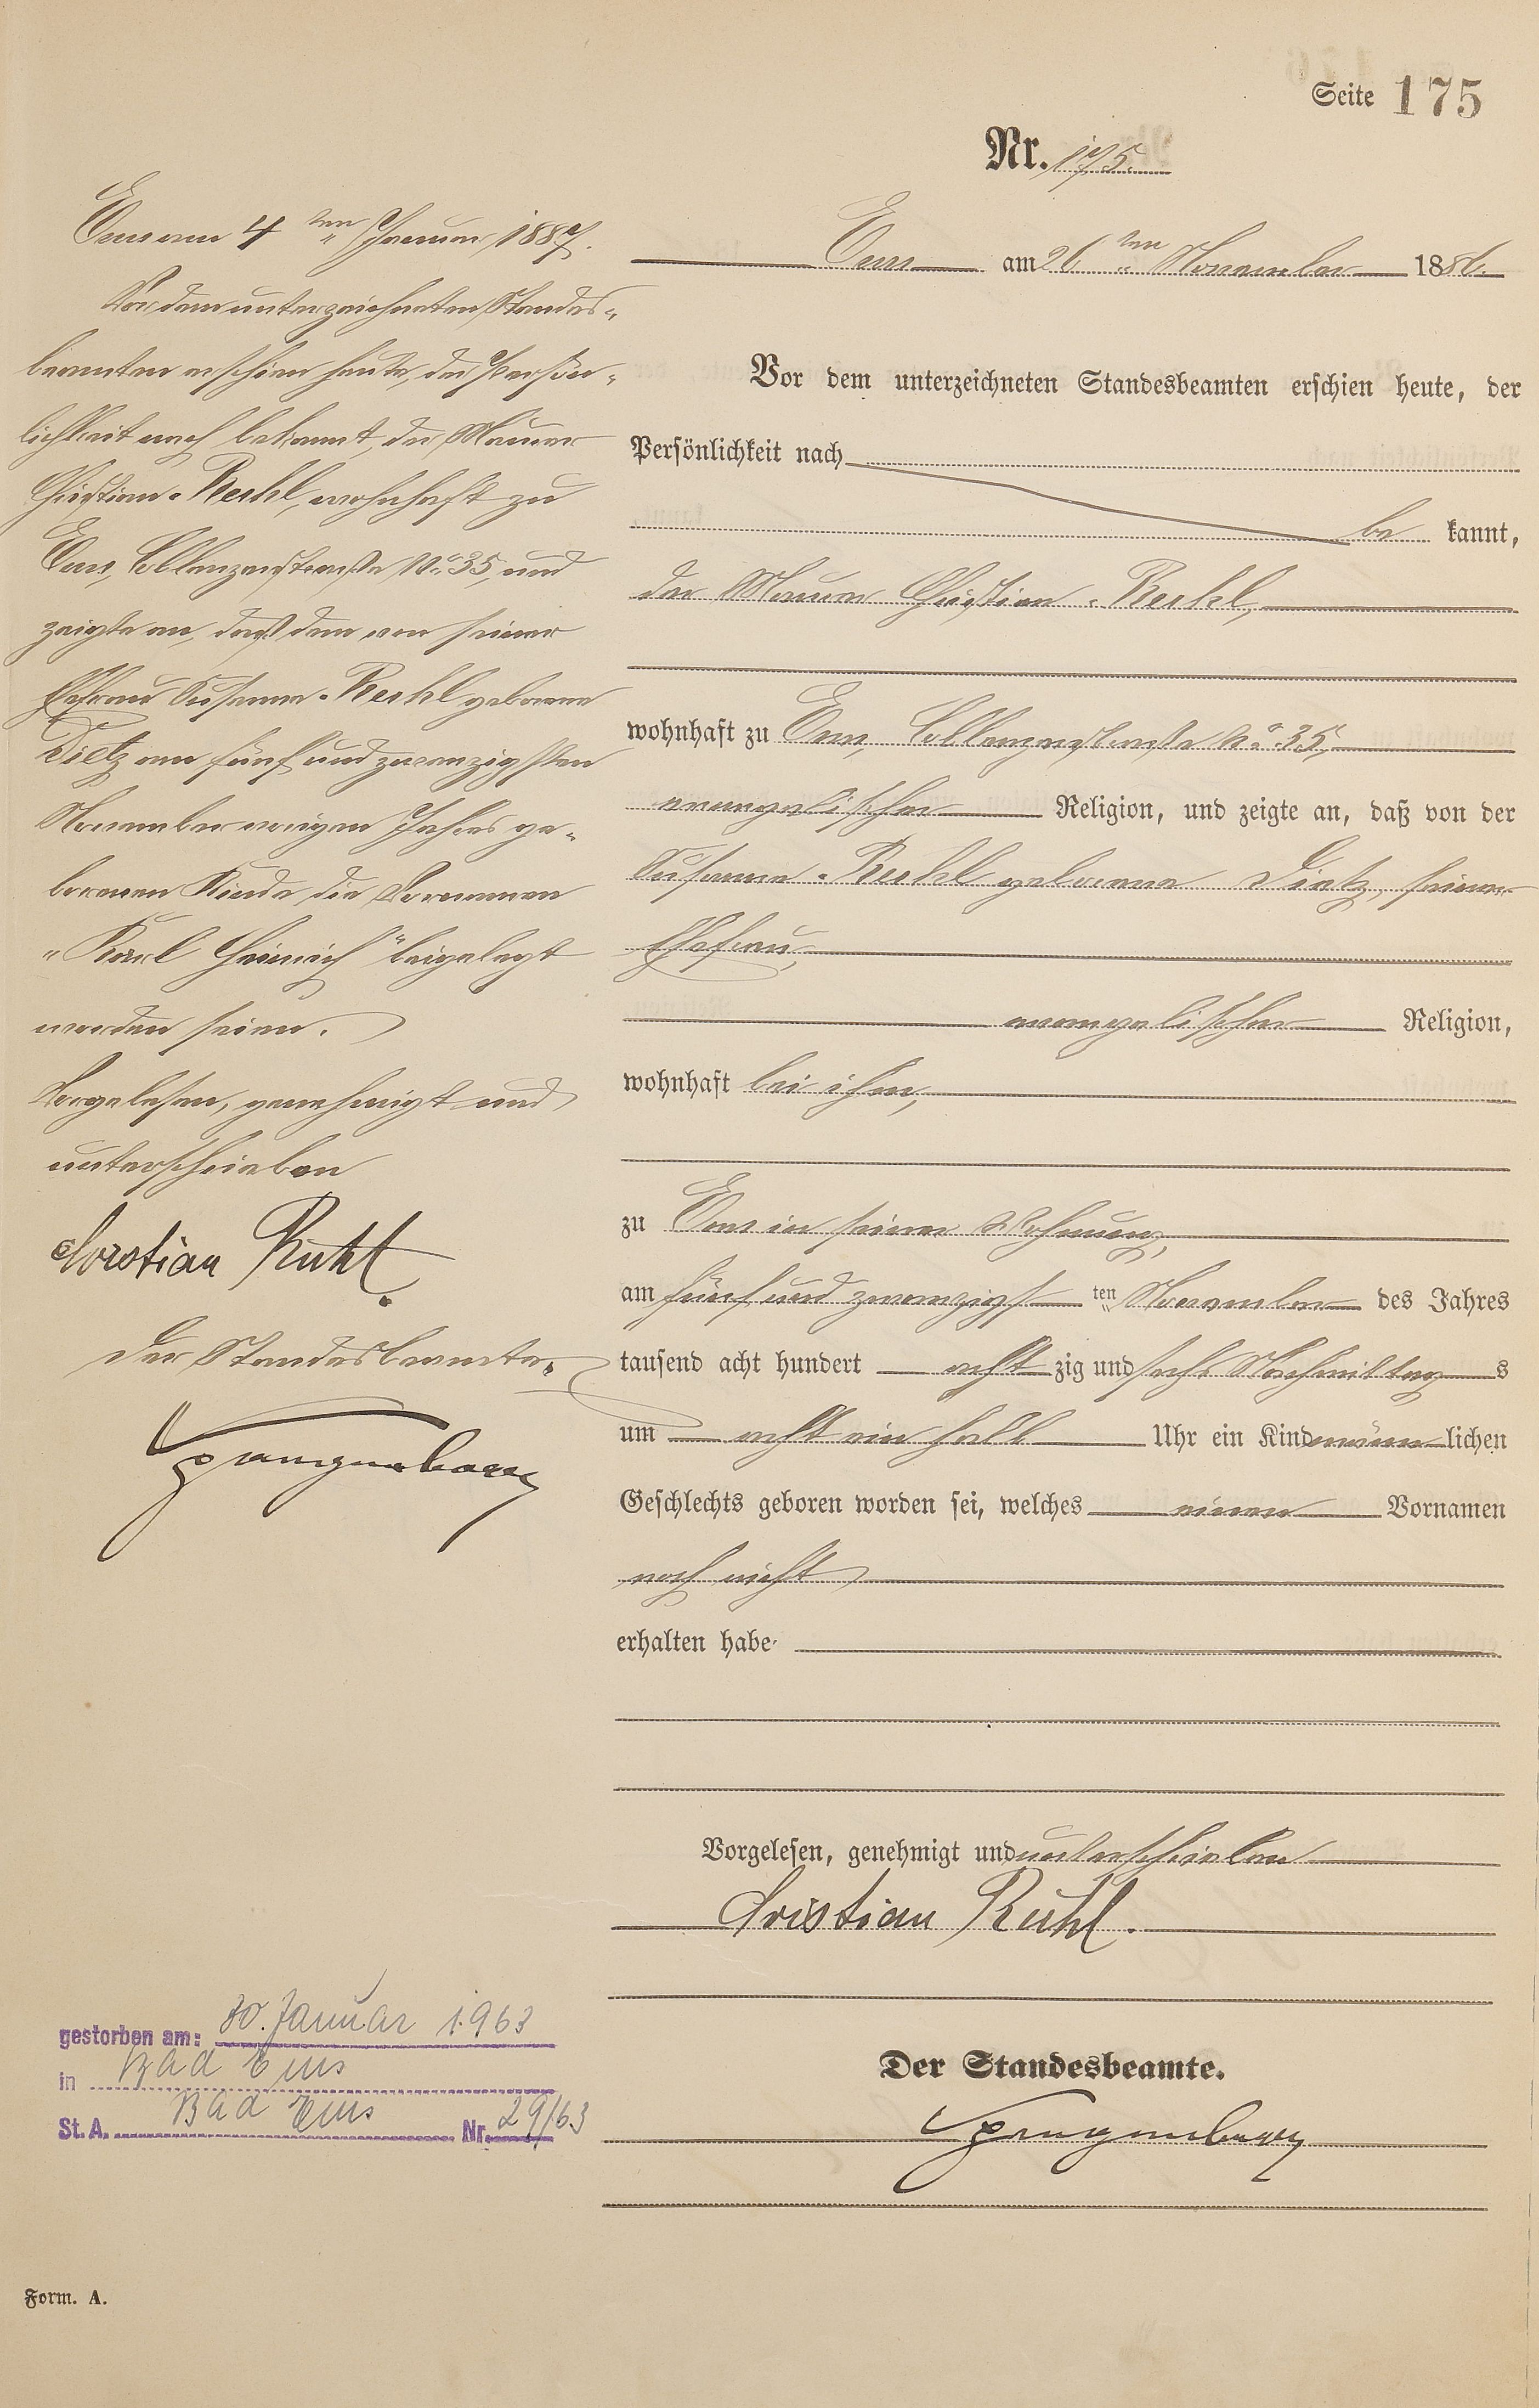 Seite 175
Nr. 175.
Ems am 4 ten Januar 1887.
Vor dem unterzeichneten Standes-
beamten erschien heute, der Persön-
lichkeit nach bekannt, der Maurer
Christian Ruhl, wohnhaft zu
Ems, Coblenzerstraße No. 35, und
zeigte an, daß dem von seiner
Ehefrau Susanna Ruhl geborene
Dietz am fünf und zwanzigsten
November vorigen Jahres ge-
borenen Kinde die Vornamen
"Karl Heinrich" beigelegt
worden seien.
Vorgelesen, genehmigt und
unterschrieben
Christian Ruhl.
Der Standesbeamte.
Spangenberg
Ems am 26 ten November 1886.
Vor dem unterzeichneten Standesbeamten erschien heute, der
Persönlichkeit nach
be kannt,
der Maurer Christian Ruhl,
wohnhaft zu Ems, Coblenzerstraße No. 35,
evangelischer Religion, und zeigte an, daß von der
Susanna Ruhl geborene Dietz, seiner
Ehefrau,
evangelischer Religion,
wohnhaft bei ihm,
zu Ems in seiner Wohnung,
am fünf und zwanzigst ten November des Jahres
tausend acht hundert acht zig und sechs Nachmittag s
um acht ein halb Uhr ein Kind männ lichen
Geschlechts geboren worden sei, welches einen Vornamen
noch nicht
erhalten habe.
Vorgelesen, genehmigt und unterschrieben
Cristian Ruhl.
Der Standesbeamte.
Spangenberg
gestorben am: 30. Januar 1963
in Bad Ems
St. A. Bad Ems Nr. 29/63
Form. A.